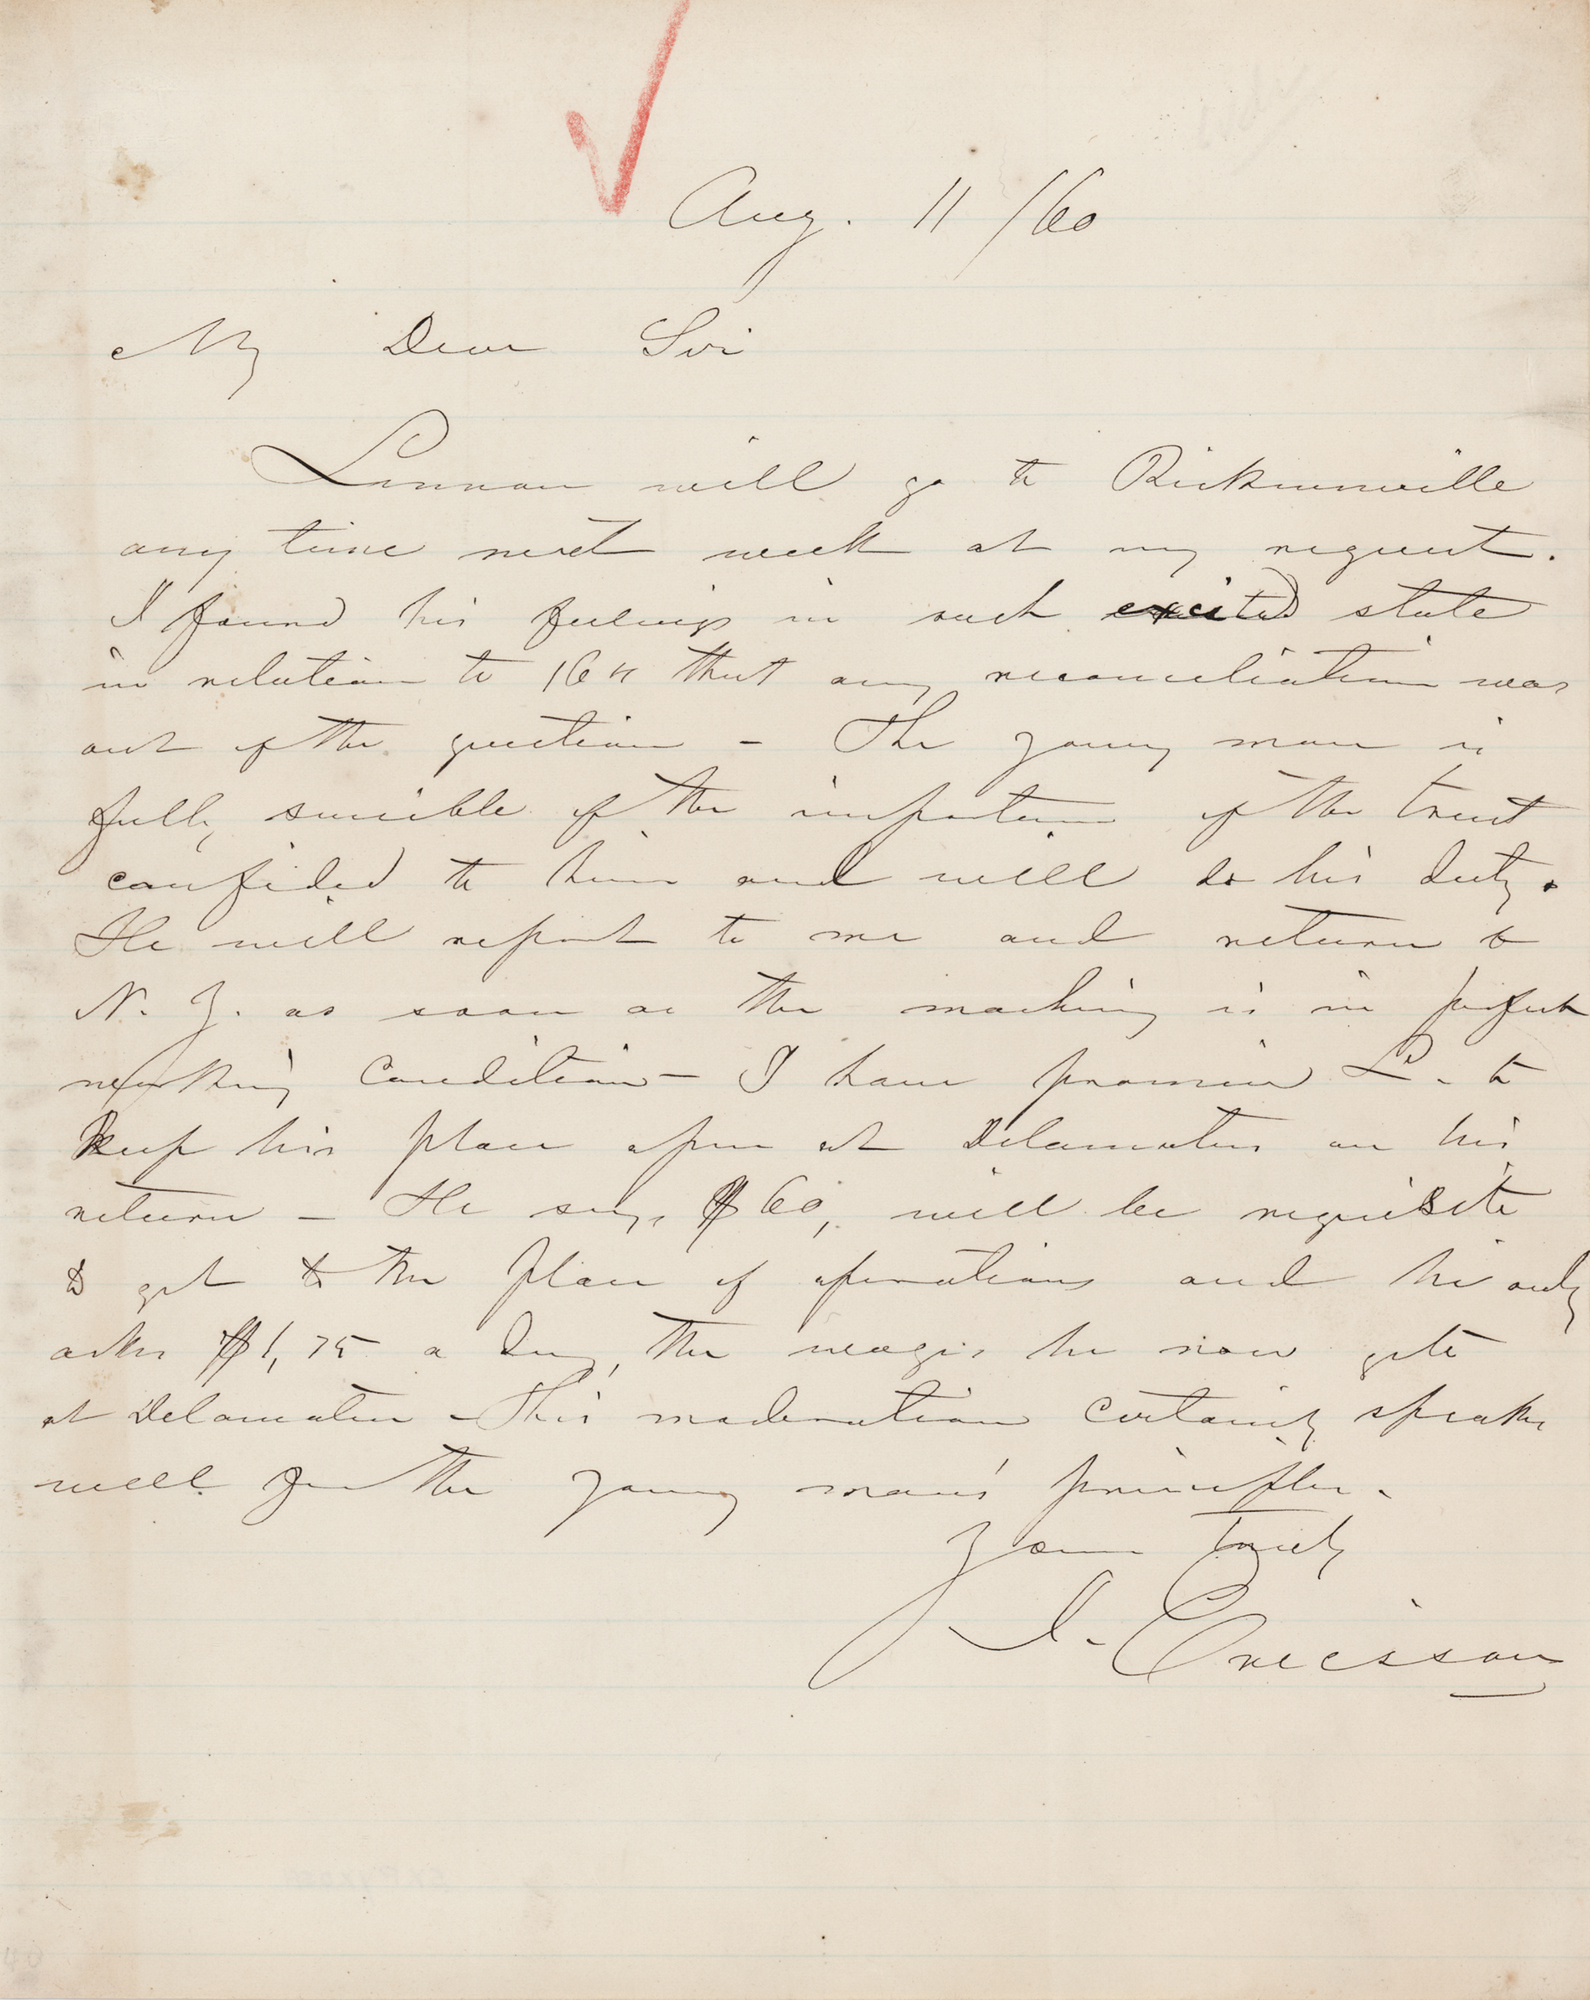 Aug. 11 /60
My Dear Sir
will go to
any time next week at my request.
I found his feelings in such excited state
in relation to 164 that any reconciliation was
out of the question - The young man is
fully sensible of the importance of the trust
confided to him and will do his duty.
He will report to me and return to
N. Y. as soon as the machine is in perfect
working condition - I have promised L. to
Keep his place open at Delamaters on his
return - He says $60, will be requisite
to get to the place of operations and he only
asks $1,75 a day, the wages he now gets
at Delamater - This moderation certainly speaks
well for the young man's principles.
Yours truly
J. Ericsson